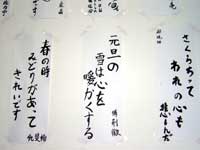 さくらちって
われの心も
悲しんだ
元旦の
雪は心を
暖かくする
春の時
みどりがあって
きれいです